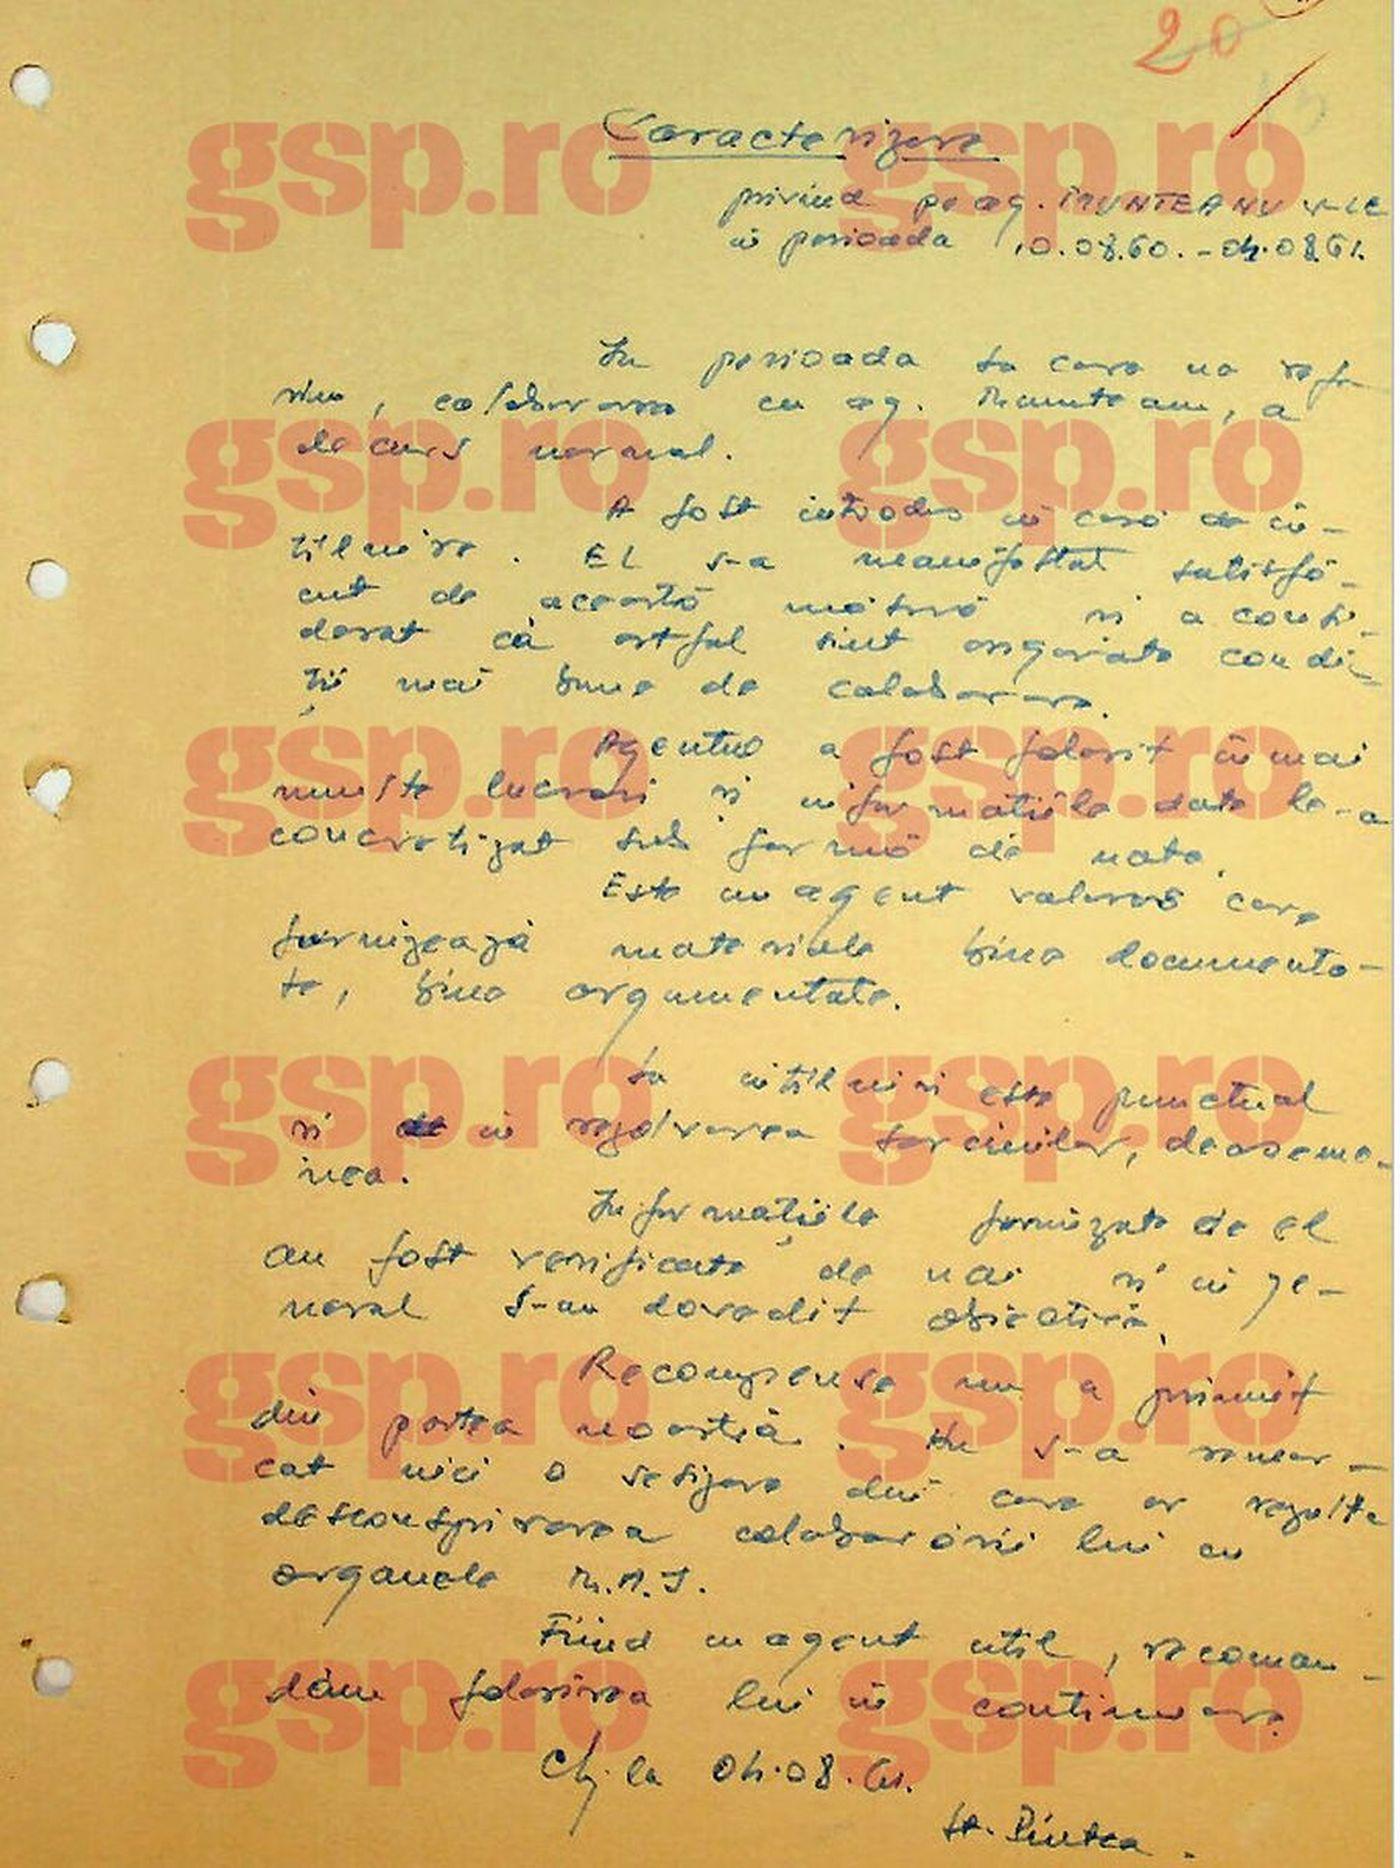 20
Caracterizare
privind pe ag. MUNTEANU V-LE
în perioada 10.08.60. - 04.08.61.
În perioada la care ne refe
rim, colaborarea cu ag. Munteanu, a
decurs normal.
A fost introdus în casă de în-
tîlnire. El s-a manifestat satisfă-
cut de această măsură și a consi-
derat că astfel sînt asigurate condi-
ții mai bune de colaborare.
Agentul a fost folosit în mai
multe lucrări și informațiile date le-a
concretizat sub formă de note.
Este un agent valoros care
furnizează materiale bine documenta-
te, bine argumentate.
La întîlniri este punctual
și de în rezolvarea sarcinilor, deaseme-
nea.
Informațiile furnizate de el
au fost verificate de noi și în ge-
neral s-au dovedit obiective.
Recompense nu a primit
din partea noastră. Nu s-a remar-
cat nici o sesizare din care ar rezulta
desconspirarea colaborării lui cu
organele M.A.I.
Fiind un agent util, recoman-
dăm folosirea lui în continuare.
Cluj la 04.08.61.
Lt. Pintea.
gsp.ro gsp.ro
gsp.ro gsp.ro
gsp.ro gsp.ro
gsp.ro gsp.ro
gsp.ro gsp.ro
gsp.ro gsp.ro